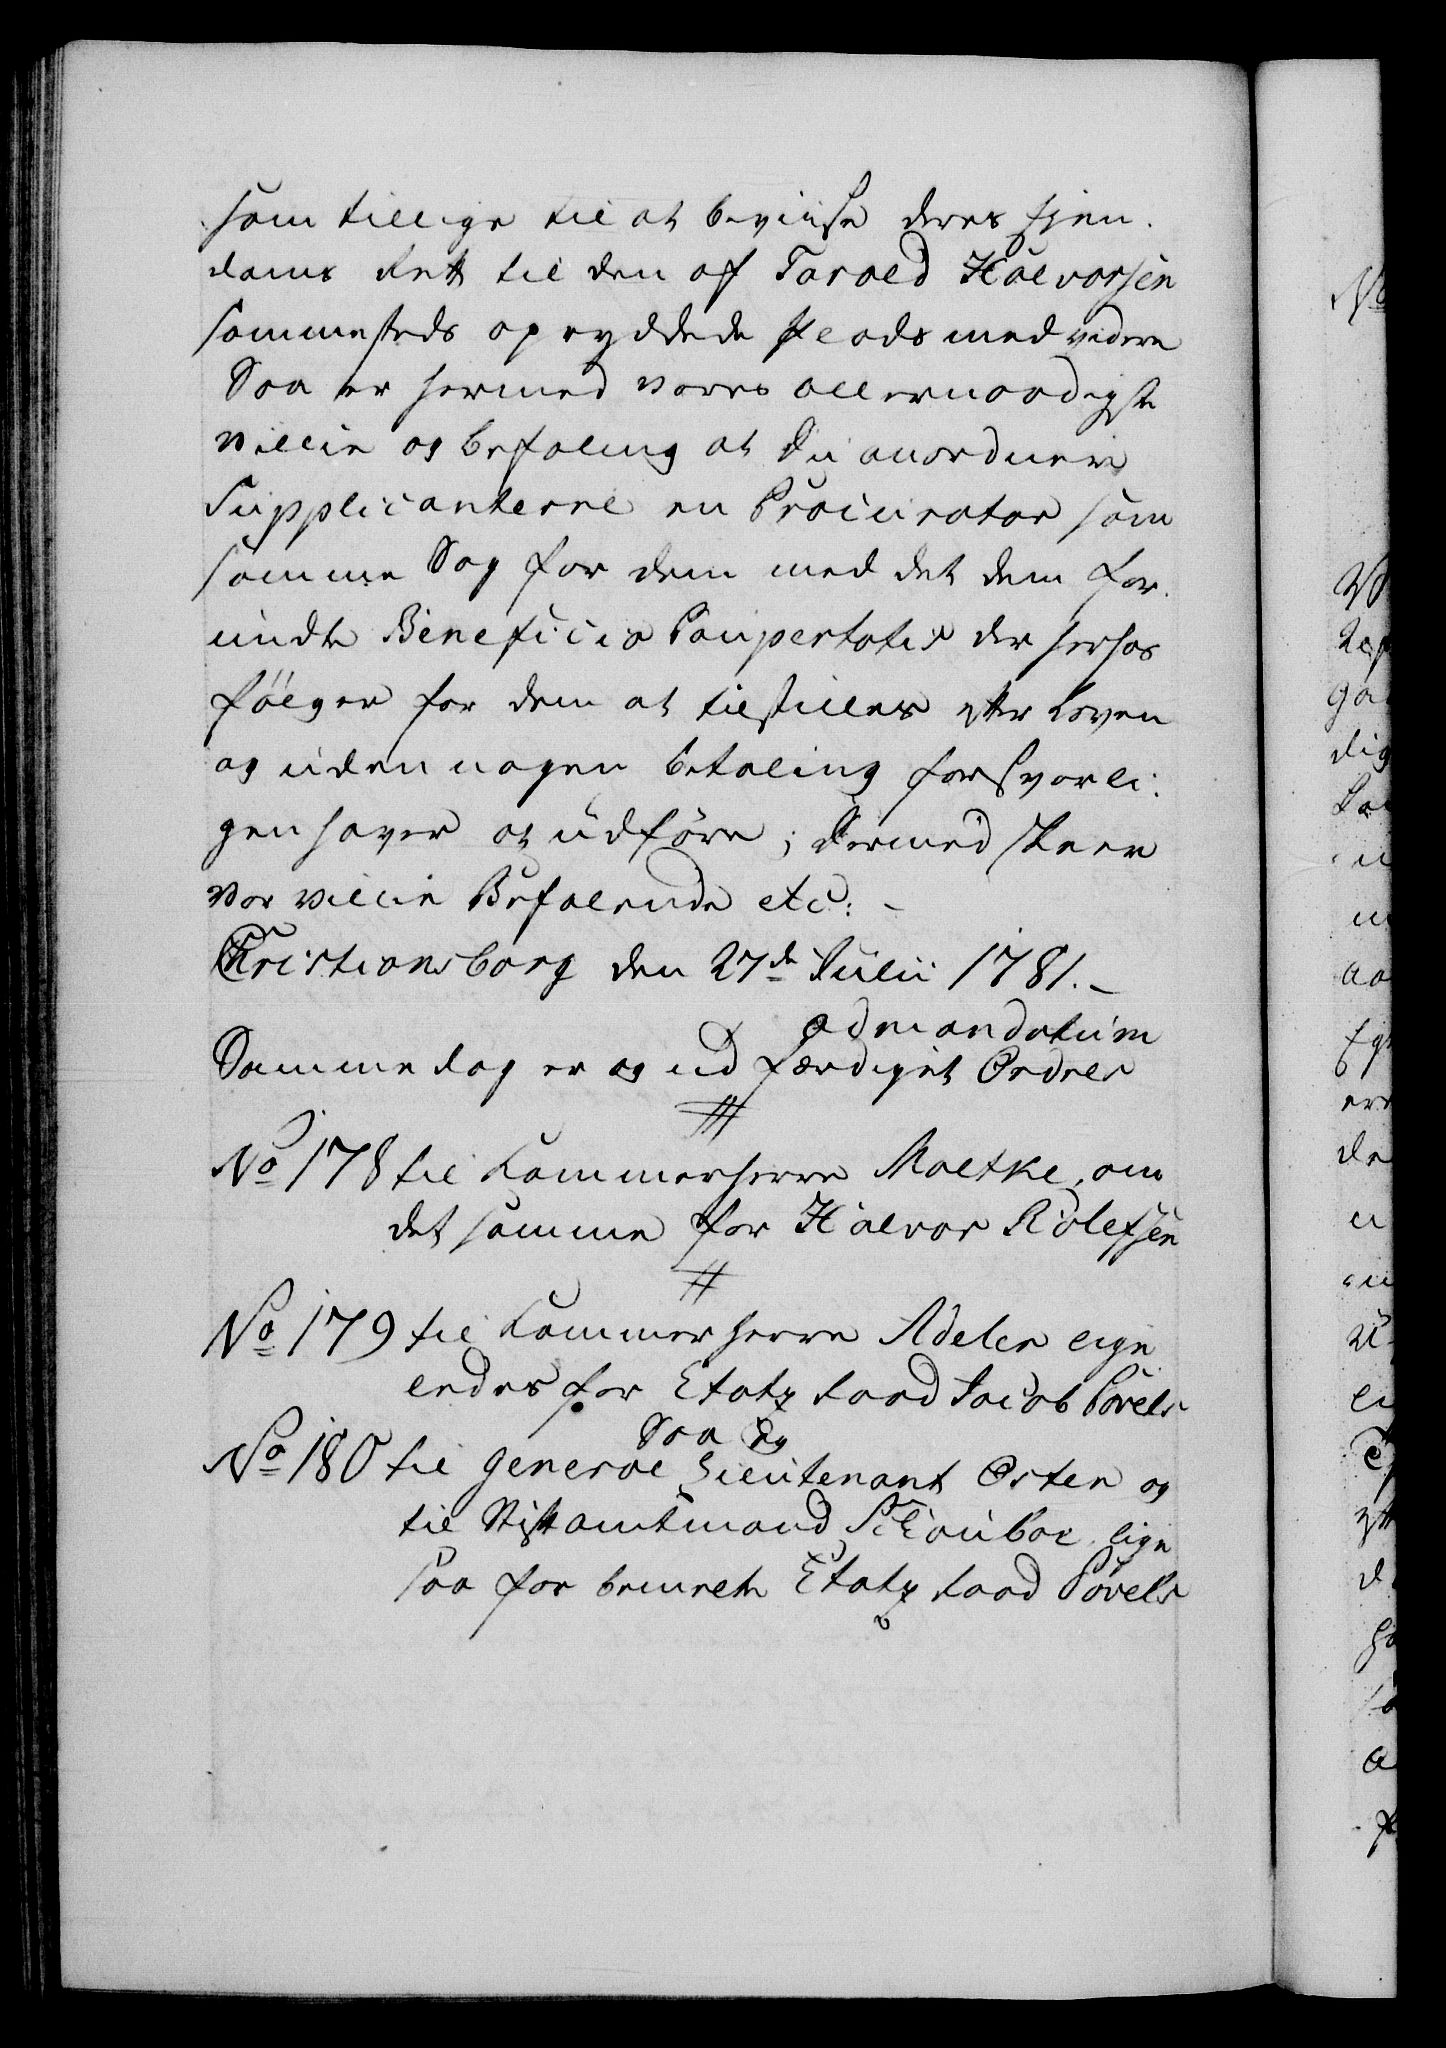 som tillige til at beviise deres Ejen-
doms Rett til den af Tarald Halvorsen
sammesteds opryddede Plads med videre
Saa er hermed vores allernaadigste
villie og befaling at du anordner
Supplicanterne en Procurator som
samme Sag for dem med det dem for-
undte Beneficio Paupertatis der herhos
følger for dem at tilstilles efter Loven
og uden nogen betaling forsvarli-
gen haver at udføre; dermed skeer
vor villie Befalende etc: -
Christiansborg den 27de Julii 1781. -
ad mandatum
Samme dag er og udfærdiget Ordres
No 178 til Kammerherre Moltke, om
det samme for Halvor Rolefsen
No 179 til Kammerherre Adeler lige
ledes for Etatz Raad Jacob Povels
Saa og
No 180 til General Lieutenant Osten og
til Stiftamtmand Schouboe lige
saa for bemelte Etatz Raad Povels